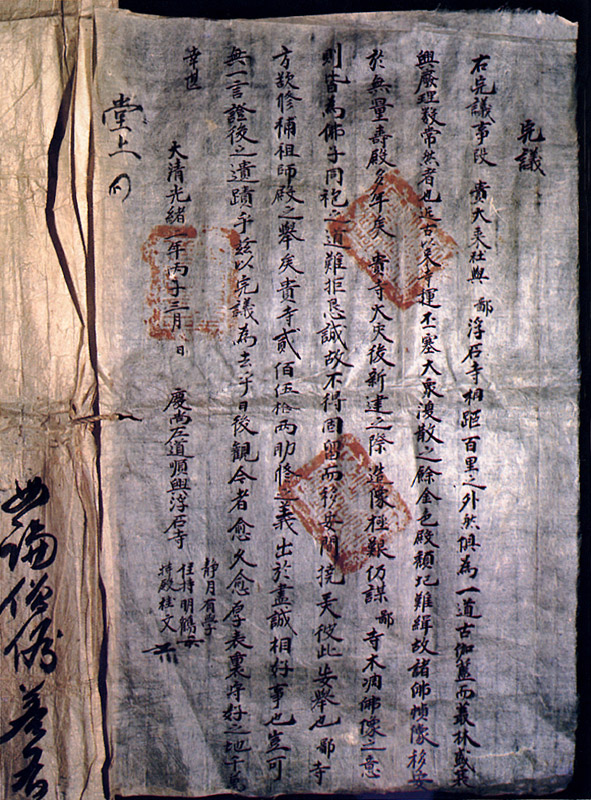 完議
右完議事段 貴大乘社與 鄙浮石寺相距百里之外然俱爲一道古伽藍而叢林盛衰
興廢理數常然者也近古以來寺運丕塞大衆渙散之餘金色殿頹圮難繕故諸佛幀像移安
於無量壽殿多年矣 貴寺大失後新建之際造像極艱仍謀 鄙寺木凋佛像之意
則皆爲佛子同袍之道難拒恳誠故不得固留而移安 彼此安擧也 鄙寺
方欲修補祖師殿之擧矣貴寺貳佰伍拾兩助修之義出於盡誠相好事也豈可
無一言證後之遺蹟乎玆以完議爲去乎日後觀今者愈久愈厚表裏
幸甚
大清光緒二年丙子三月 日 慶尚左道順興浮石寺
靜月有學
住持明鶴
持殿桂文
堂上